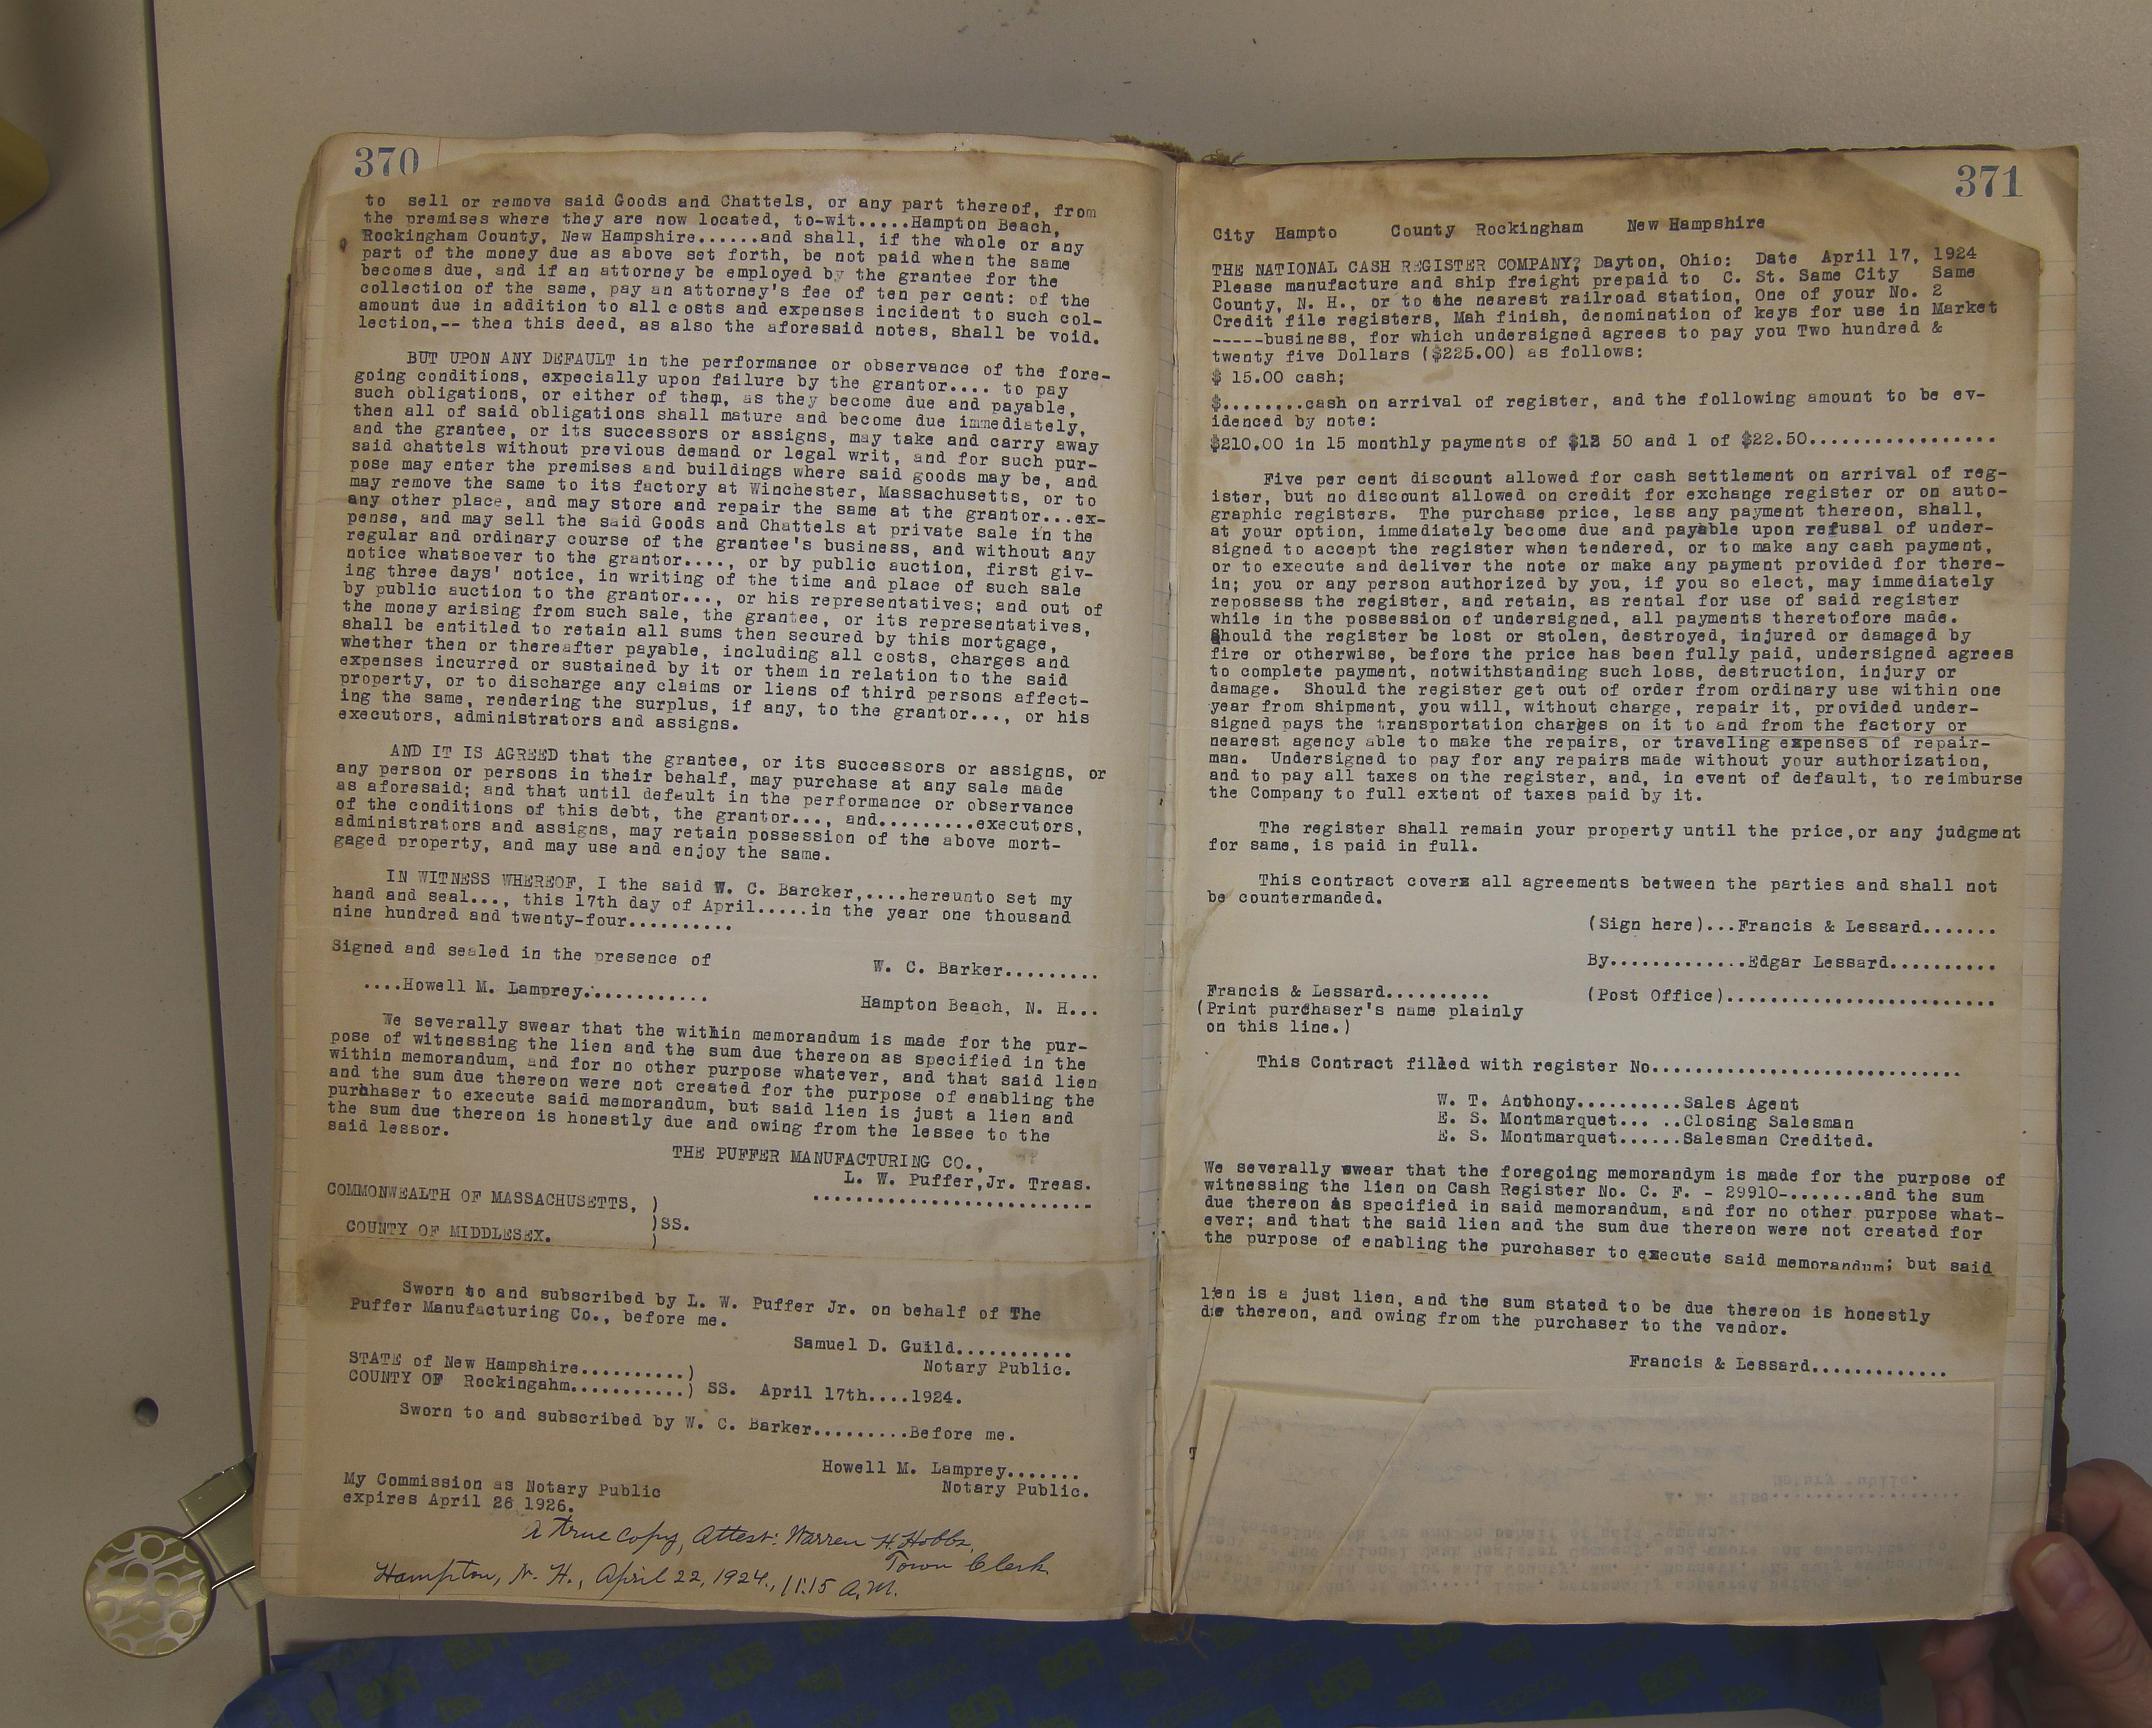 370
to sell or remove said Goods and Chattels, or any part thereof, from
the premises where they are now located, to-wit.....Hampton Beach,
Rockingham County, New Hampshire......and shall, if the whole or any
part of the money due as above set forth, be not paid when the same
becomes due, and if an attorney be employed by the grantee for the
collection of the same, pay an attorney's fee of ten per cent: of the
amount due in addition to all costs and expenses incident to such col-
lection,-- then this deed, as also the aforesaid notes, shall be void.
BUT UPON ANY DEFAULT in the performance or observance of the fore-
going conditions, expecially upon failure by the grantor.... to pay
such obligations, or either of them, as they become due and payable,
then all of said obligations shall mature and become due immediately,
and the grantee, or its successors or assigns, may take and carry away
said chattels without previous demand or legal writ, and for such pur-
pose may enter the premises and buildings where said goods may be, and
may remove the same to its factory at Winchester, Massachusetts, or to
any other place, and may store and repair the same at the grantor...ex-
pense, and may sell the said Goods and Chattels at private sale in the
regular and ordinary course of the grantee's business, and without any
notice whatsoever to the grantor...., or by public auction, first giv-
ing three days' notice, in writing of the time and place of such sale
by public auction to the grantor..., or his representatives; and out of
the money arising from such sale, the grantee, or its representatives,
shall be entitled to retain all sums then secured by this mortgage,
whether then or thereafter payable, including all costs, charges and
expenses incurred or sustained by it or them in relation to the said
property, or to discharge any claims or liens of third persons affect-
ing the same, rendering the surplus, if any, to the grantor..., or his
executors, administrators and assigns.
AND IT IS AGREED that the grantee, or its successors or assigns, or
any person or persons in their behalf, may purchase at any sale made
as aforesaid; and that until default in the performance or observance
of the conditions of this debt, the grantor..., and.........executors,
administrators and assigns, may retain possession of the above mort-
gaged property, and may use and enjoy the same.
IN WITNESS WHEREOF, I the said W. C. Barcker,....hereunto set my
hand and seal..., this 17th day of April.....in the year one thousand
nine hundred and twenty-four..........
Signed and sealed in the presence of
W. C. Barker.........
....Howell M. Lamprey............
Hampton Beach, N. H...
We severally swear that the within memorandum is made for the pur-
pose of witnessing the lien and the sum due thereon as specified in the
within memorandum, and for no other purpose whatever, and that said lien
and the sum due thereon were not created for the purpose of enabling the
purchaser to execute said memorandum, but said lien is just a lien and
the sum due thereon is honestly due and owing from the lessee to the
said lessor.
THE PUFFER MANUFACTURING CO.,
L. W. Puffer,Jr. Treas.
COMMONWEALTH OF MASSACHUSETTS, )
)SS.
COUNTY OF MIDDLESEX. )
Sworn to and subscribed by L. W. Puffer Jr. on behalf of The
Puffer Manufacturing Co., before me.
Samuel D. Guild...........
Notary Public.
STATE of New Hampshire..........)
COUNTY OF Rockingahm...........) SS. April 17th....1924.
Sworn to and subscribed by W. C. Barker.........Before me.
Howell M. Lamprey.......
Notary Public.
My Commission as Notary Public
expires April 26 1926.
A true copy, Attest: Warren H. Hobbs,
Town Clerk
Hampton, N. H., April 22, 1924, 11:15 A.M.
371
City Hampto County Rockingham New Hampshire
THE NATIONAL CASH REGISTER COMPANY? Dayton, Ohio: Date April 17, 1924
Please manufacture and ship freight prepaid to C. St. Same City Same
County, N. H., or to the nearest railroad station, One of your No. 2
Credit file registers, Mah finish, denomination of keys for use in Market
-----business, for which undersigned agrees to pay you Two hundred &
twenty five Dollars ($225.00) as follows:
$ 15.00 cash;
$........cash on arrival of register, and the following amount to be ev-
idenced by note:
$210.00 in 15 monthly payments of $12 50 and 1 of $22.50.................
Five per cent discount allowed for cash settlement on arrival of reg-
ister, but no discount allowed on credit for exchange register or on auto-
graphic registers. The purchase price, less any payment thereon, shall,
at your option, immediately become due and payable upon refusal of under-
signed to accept the register when tendered, or to make any cash payment,
or to execute and deliver the note or make any payment provided for there-
in; you or any person authorized by you, if you so elect, may immediately
repossess the register, and retain, as rental for use of said register
while in the possession of undersigned, all payments theretofore made.
Should the register be lost or stolen, destroyed, injured or damaged by
fire or otherwise, before the price has been fully paid, undersigned agrees
to complete payment, notwithstanding such loss, destruction, injury or
damage. Should the register get out of order from ordinary use within one
year from shipment, you will, without charge, repair it, provided under-
signed pays the transportation charges on it to and from the factory or
nearest agency able to make the repairs, or traveling expenses of repair-
man. Undersigned to pay for any repairs made without your authorization,
and to pay all taxes on the register, and, in event of default, to reimburse
the Company to full extent of taxes paid by it.
The register shall remain your property until the price,or any judgment
for same, is paid in full.
This contract covers all agreements between the parties and shall not
be countermanded.
(Sign here)...Francis & Lessard.......
By.............Edgar Lessard..........
Francis & Lessard.......... (Post Office)..........................
(Print purchaser's name plainly
on this line.)
This Contract filled with register No..............................
W. T. Anthony..........Sales Agent
E. S. Montmarquet... ..Closing Salesman
E. S. Montmarquet......Salesman Credited.
We severally swear that the foregoing memorandym is made for the purpose of
witnessing the lien on Cash Register No. C. F. - 29910-........and the sum
due thereon as specified in said memorandum, and for no other purpose what-
ever; and that the said lien and the sum due thereon were not created for
the purpose of enabling the purchaser to execute said memorandum; but said
lien is a just lien, and the sum stated to be due thereon is honestly
due thereon, and owing from the purchaser to the vendor.
Francis & Lessard.............